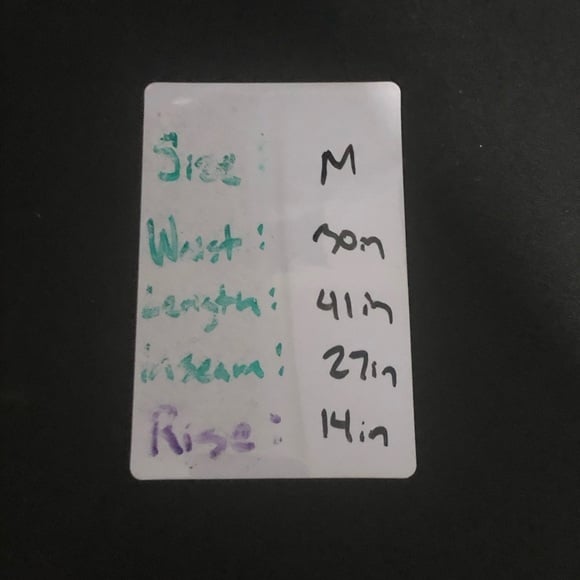 Size: M
Waist: 30in
Length: 41in
inseam: 27in
Rise: 14in